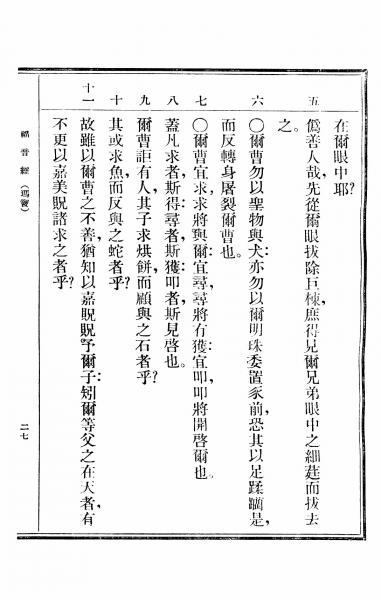 在爾眼中耶?
五 僞善人哉,先從爾眼拔除巨棟,庶得見爾兄弟眼中之細莛而拔去
之。
六 〇爾曹勿以聖物與犬:亦勿以爾明珠委置豕前,恐其以足蹂躪是,
而反轉身屠裂爾曹也。
七 〇爾曹宜求求將與爾:宜尋尋將有獲:宜叩叩將開啓爾也。
八 蓋凡求者斯得:尋者斯獲:叩者斯見啓也。
九 爾曹詎有人,其子求烘餅而顧與之石者乎?
十 其或求魚,而反與之蛇者乎?
十一 故雖以爾曹之不善,猶知以嘉貺貺予爾子:矧爾等父之在天者,有
不更以嘉美貺諸求之者乎?
福音經(瑪竇)
二七